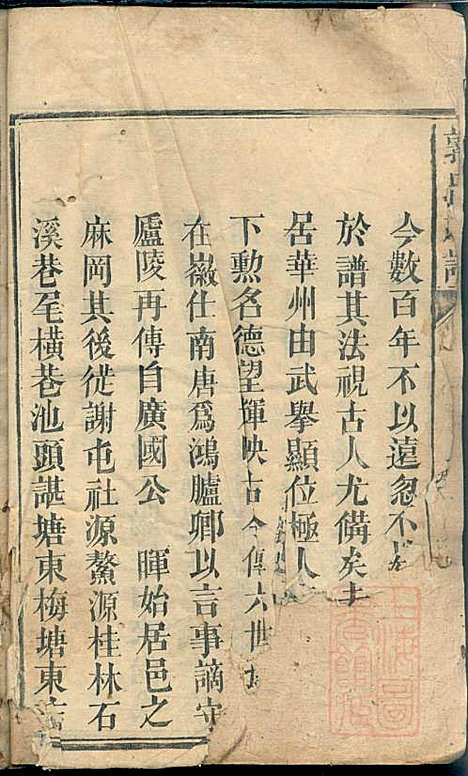 今數百年不以遠忽不
於譜其法視古人尤備矣
居華州由武舉顯位極人
下勳名德望輝映古今傳六世
在嶽仕南唐爲鴻臚卿以言事謫守
廬陵再傳自廣國公 暉始居邑之
麻岡其後徙謝屯社源鰲源桂林石
溪巷尾橫巷池頭諶塘東梅塘東